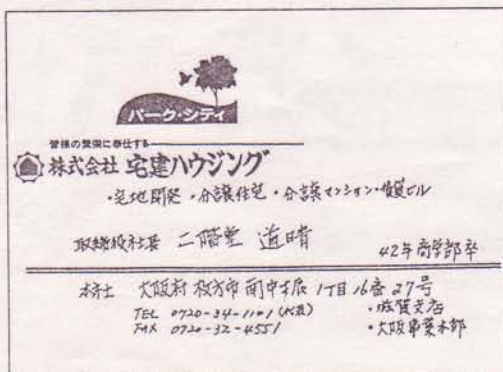 パーク・シティ
皆様の繁栄に奉仕する
株式会社 宅建ハウジング
・宅地開発・分譲住宅・分譲マンション・賃貸ビル
取締役社長 二階堂 道晴
42年商学部卒
本社 大阪府枚方市南中振1丁目16番27号
TEL 0720-34-1101(代表)
・滋賀支店
FAX 0720-32-4551
・大阪事業本部